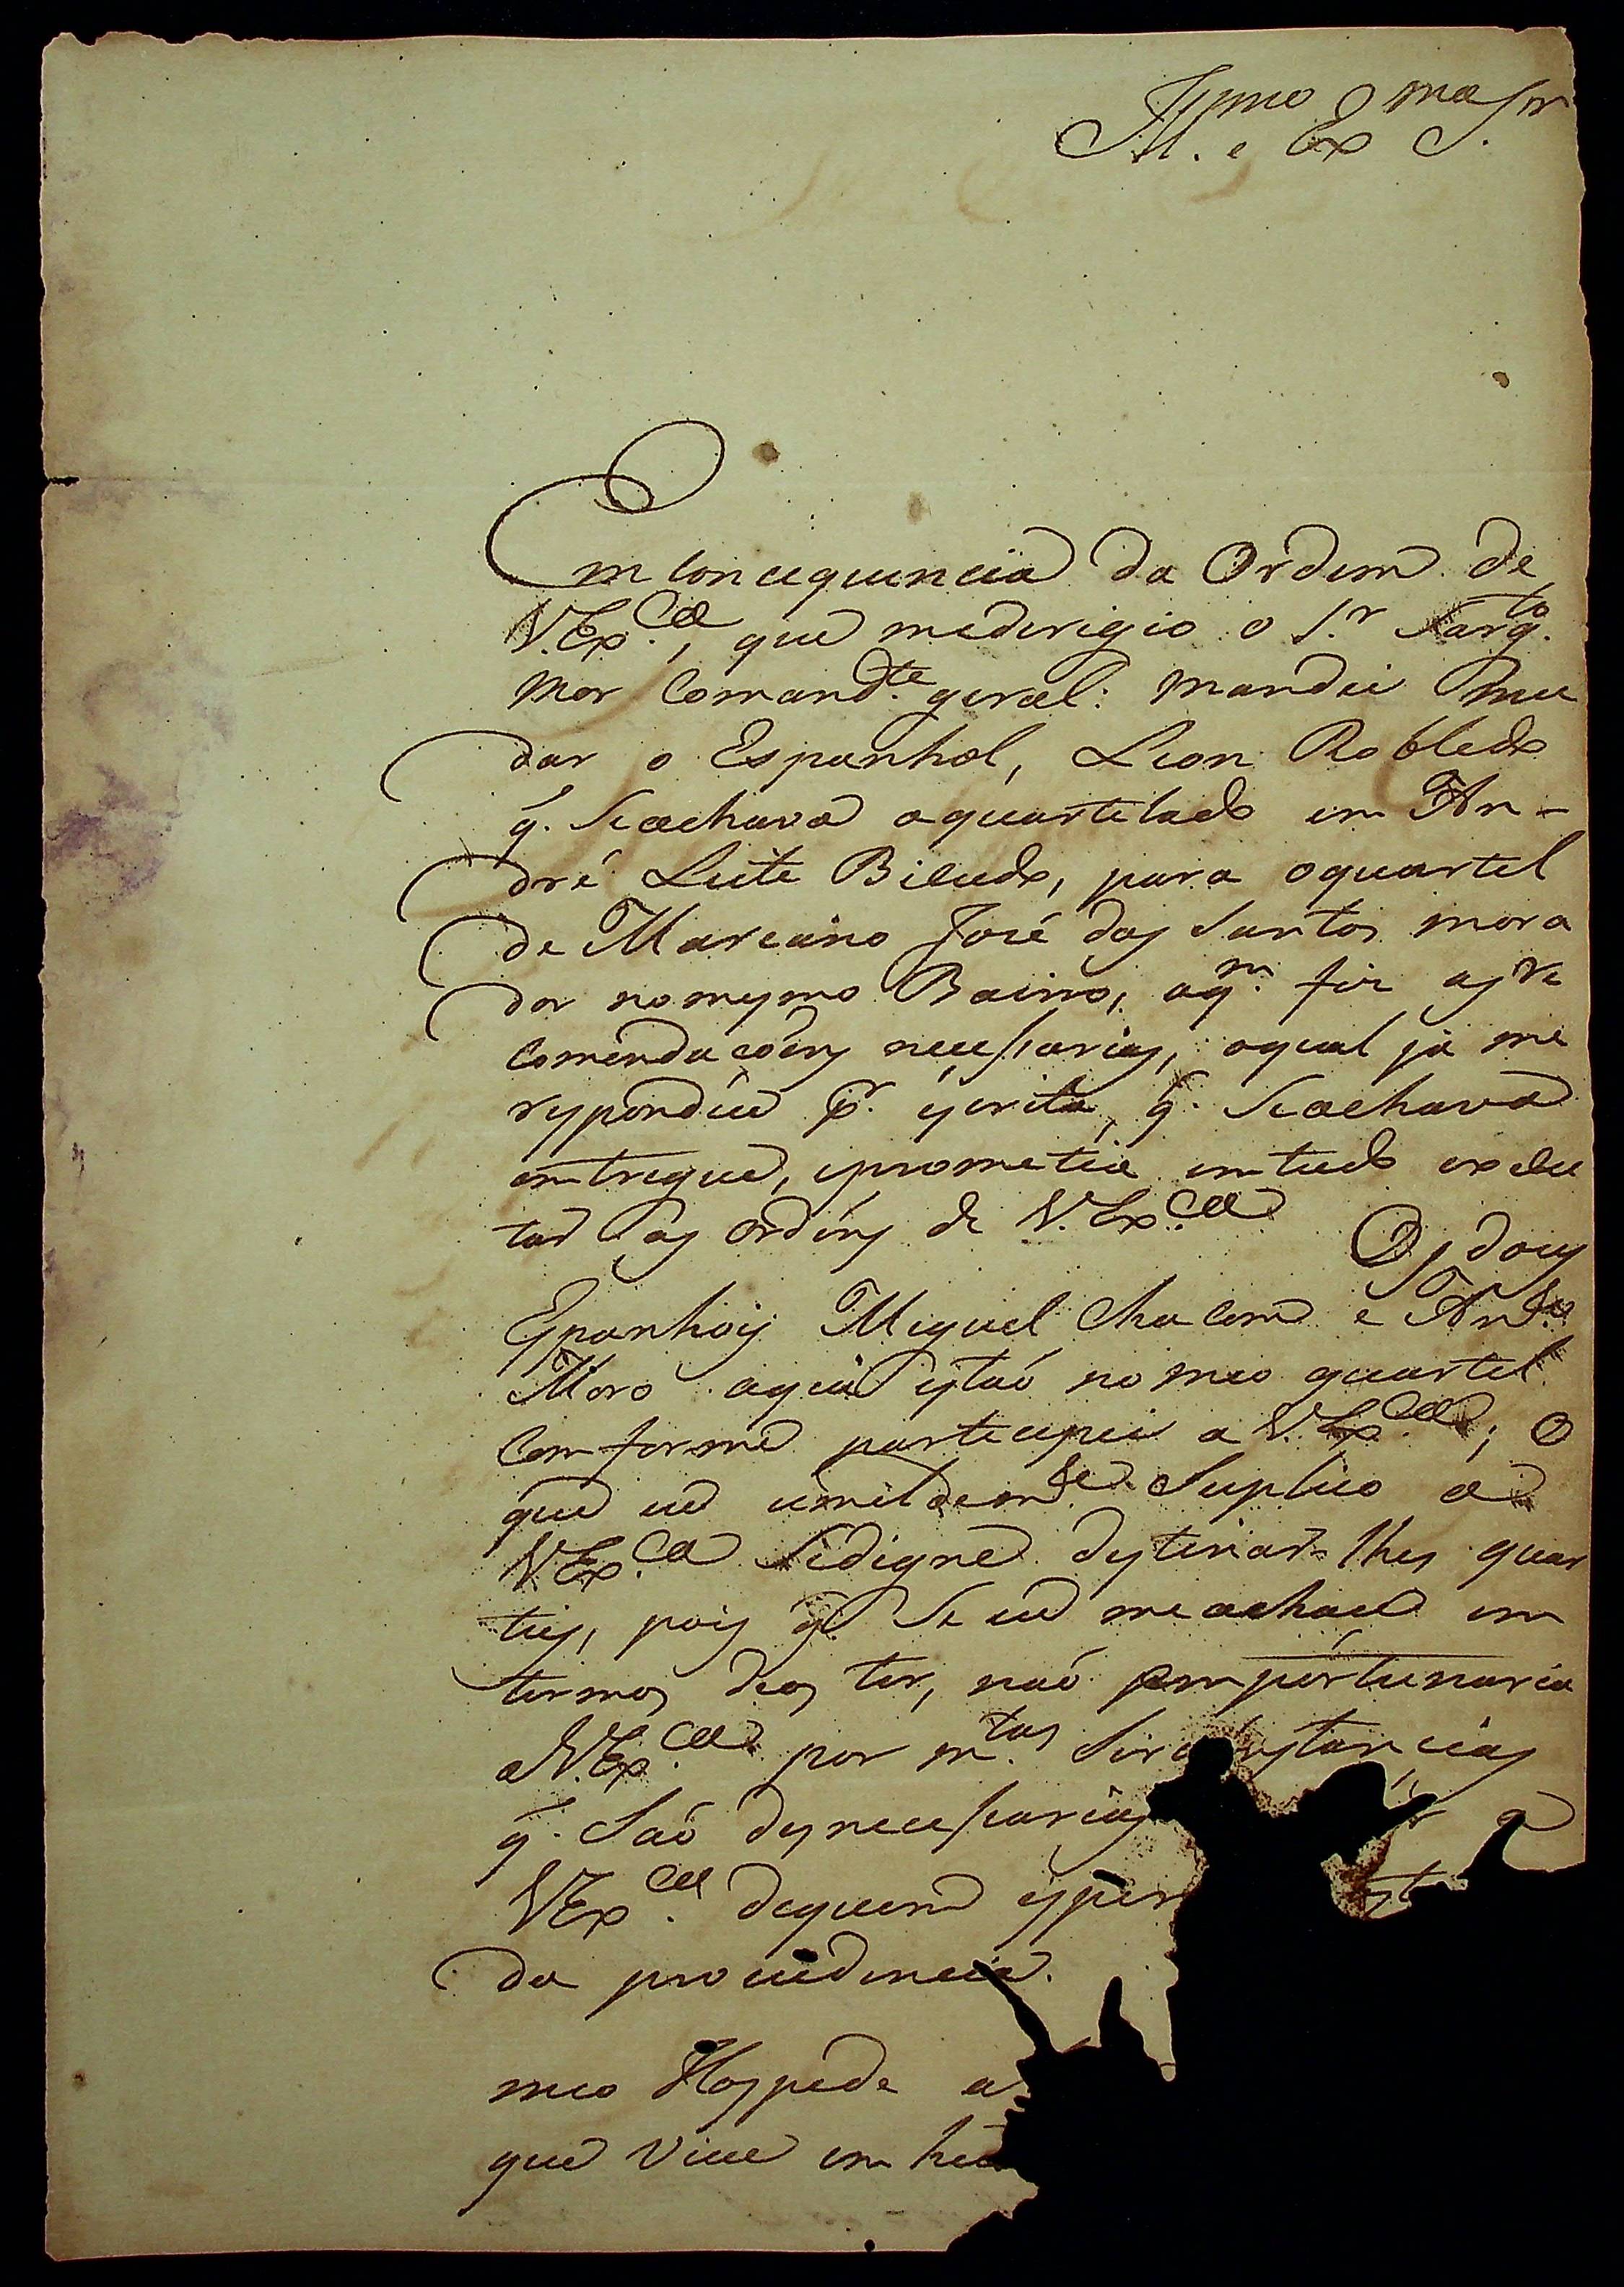 Illmo. e Exmo Sr.
Em Concequencia da Ordem de
V. Exca., que mederigio o Sr. Sargto.
Mor Comandte. geral: mandei mu
dar o Espanhol, Leon Robledo
q. Seachava aquartelado em An-
dré Leite Bicudo, para oquartel
de Marciano José dos Santos mora
dor no mesmo Bairro, aqm. fiz as re
comendaçoens necessarias, oqual já me
respondeu pr. escrito, q. Seachava
entregue, eprometia emtudo exècu
tar as ordens de V. Exca.
Os dous
Espanhois Miguel Chacom e Andre
Moro aqui estaó no meo quartel
Comforme partecipei a V. Exca.; O
que eu umildemte. Suplico a
V Exca. Sedigne destinar-lhes quar
teis, pois q. Se eu meachace em
termos deos ter, naó emportunaria
aV. Exca. por mtas. Sircunstancias
q. Saó desnecessarias a
V Exca. dequem esper
da providencia.
meo Hospede a
que vive em